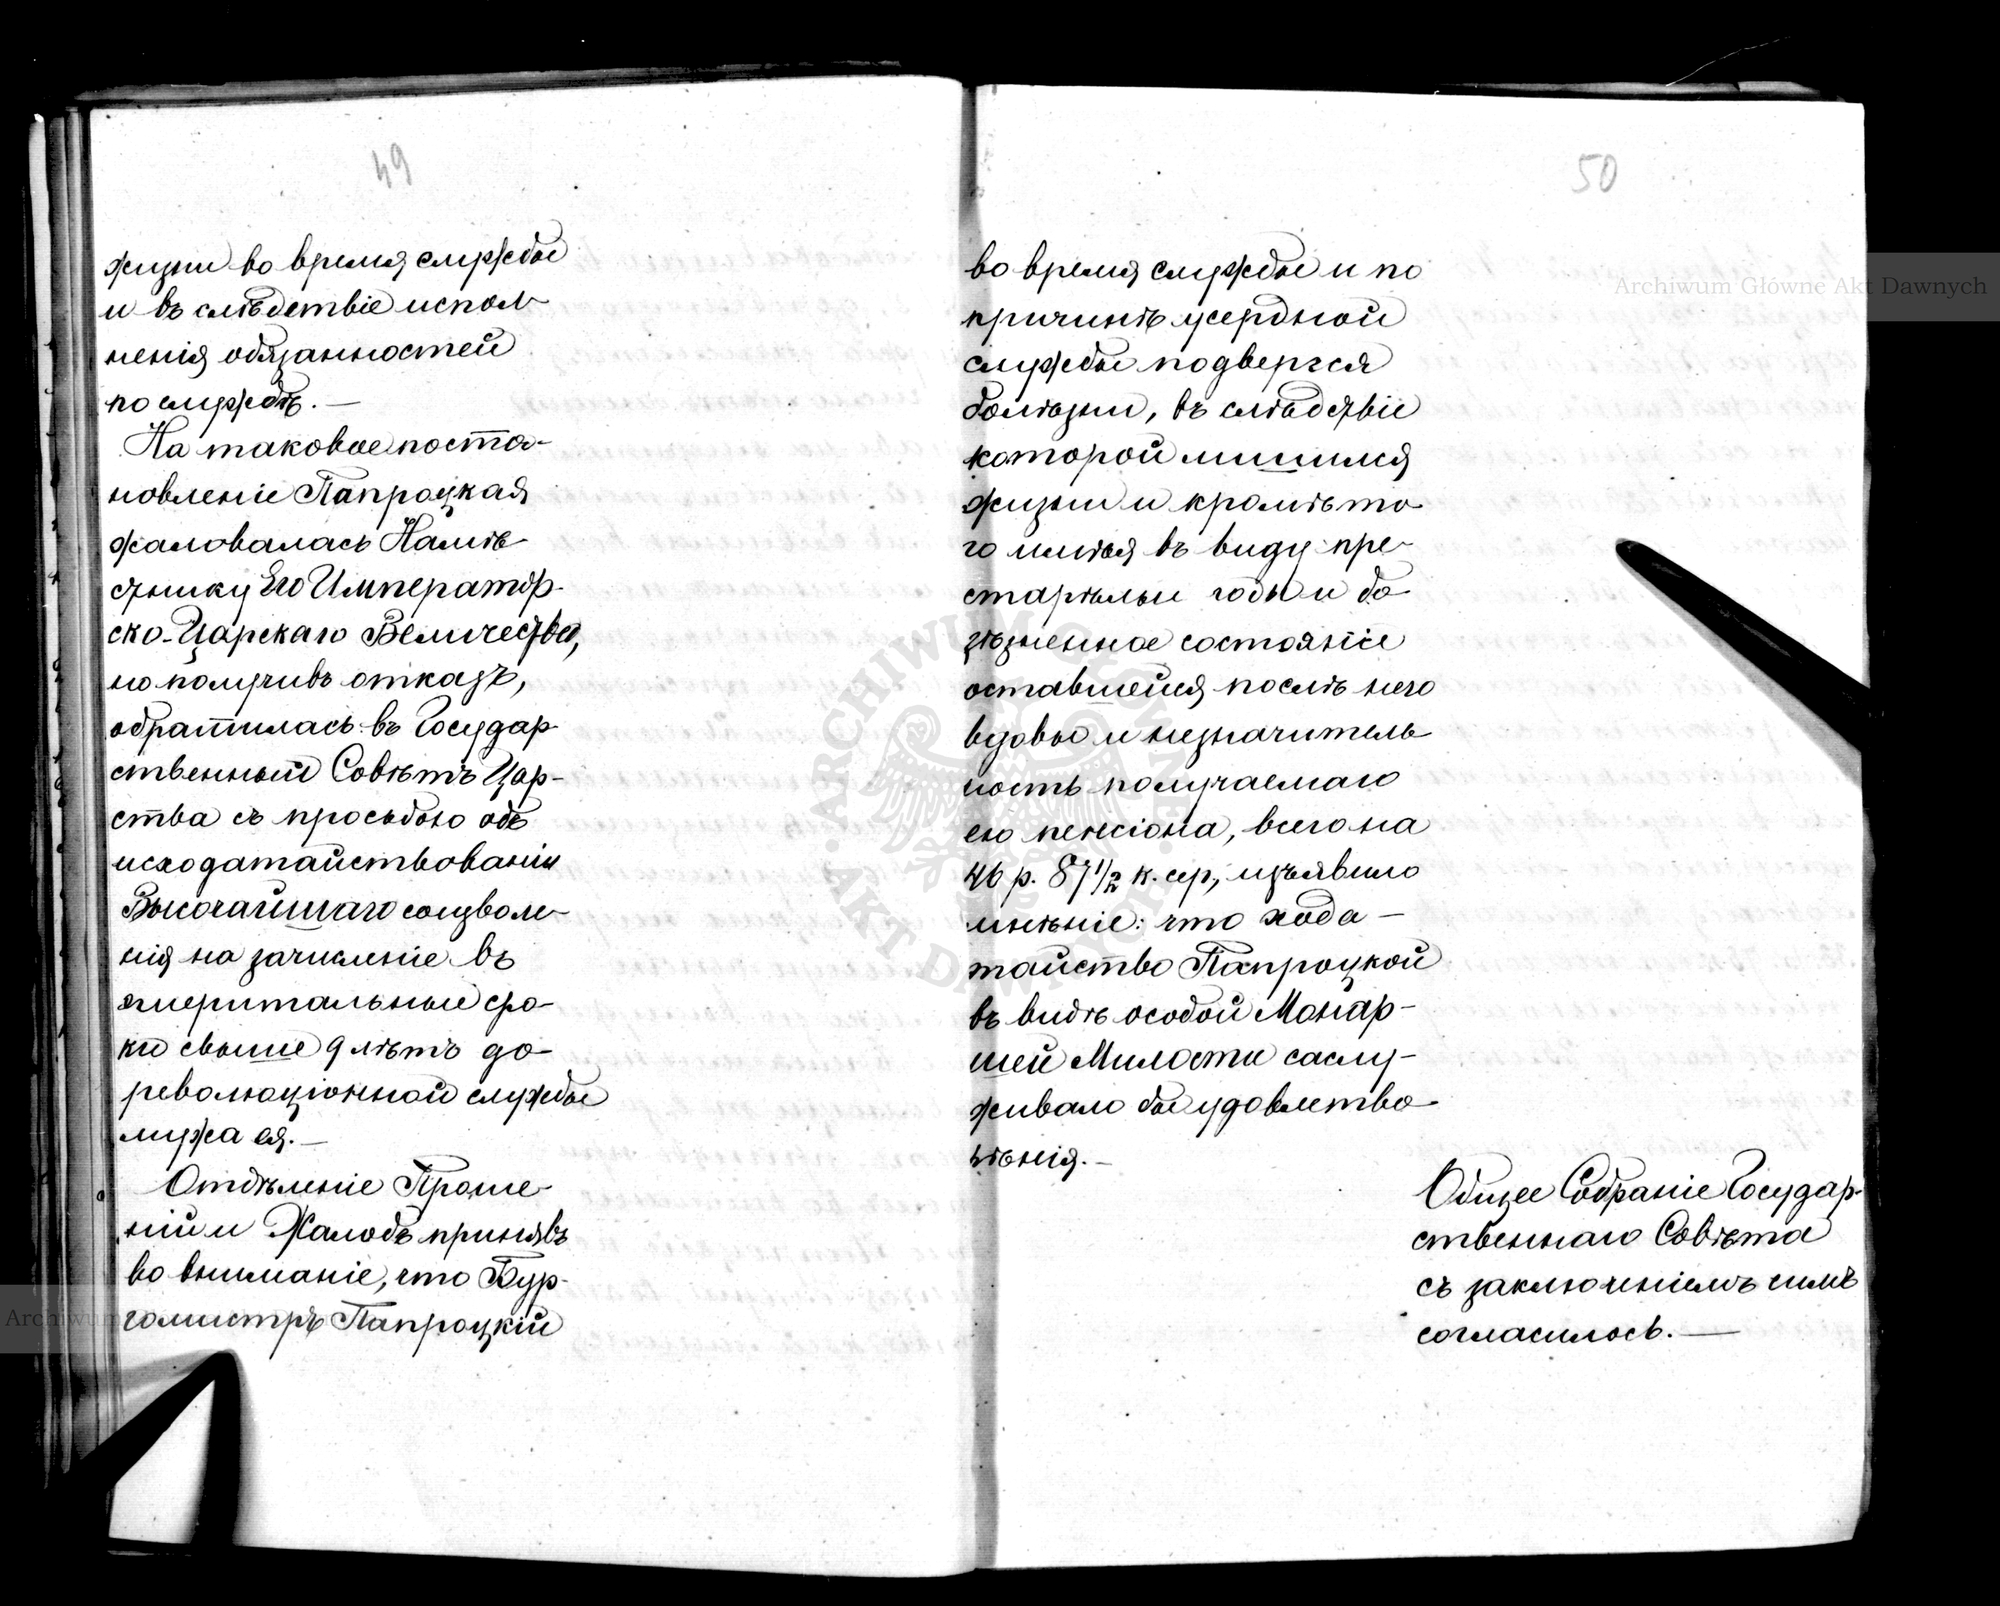 49
жизни во время службы
и въ слѣдствіе испол-
ненія обязанностей
по службѣ. —
На таковое поста-
новленіе Папроцкая
жаловалась Намѣ-
стнику Его Император-
ско-Царскаго Величества,
но получивъ отказъ,
обратилась въ Государ-
ственный Совѣтъ Цар-
ства съ просьбою объ
исходатайствованіи
Высочайшаго соизволе-
нія на зачисленіе въ
эмеритальные сро-
ки свыше 9 лѣтъ до-
революціонной службы
мужа ея. —
Отдѣленіе Проше-
ній и Жалобъ принявъ
во вниманіе, что Бур-
гомистръ Папроцкій
50
во время службы и по
причинѣ усердной
службы подвергся
болѣзни, въ слѣдствіе
которой лишился
жизни и кромѣ то-
го имѣя въ виду пре-
старѣлые годы и бо-
лѣзненное состояніе
оставшейся послѣ него
вдовы и незначитель-
ность получаемаго
ею пенсіона, всего на
46 р. 87 1/2 к. сер, изъявило
мнѣніе: что хода —
тайство Папроцкой
въ видѣ особой Монар-
шей Милости заслу-
живало бы удовлетво-
рѣнія. —
Общее Собраніе Государ-
ственнаго Совѣта
съ заключеніемъ симъ
согласилось. —
Archiwum Główne Akt Dawnych
ARCHIWUM GŁÓWNE · AKT DAWNYCH ·
Archiwum